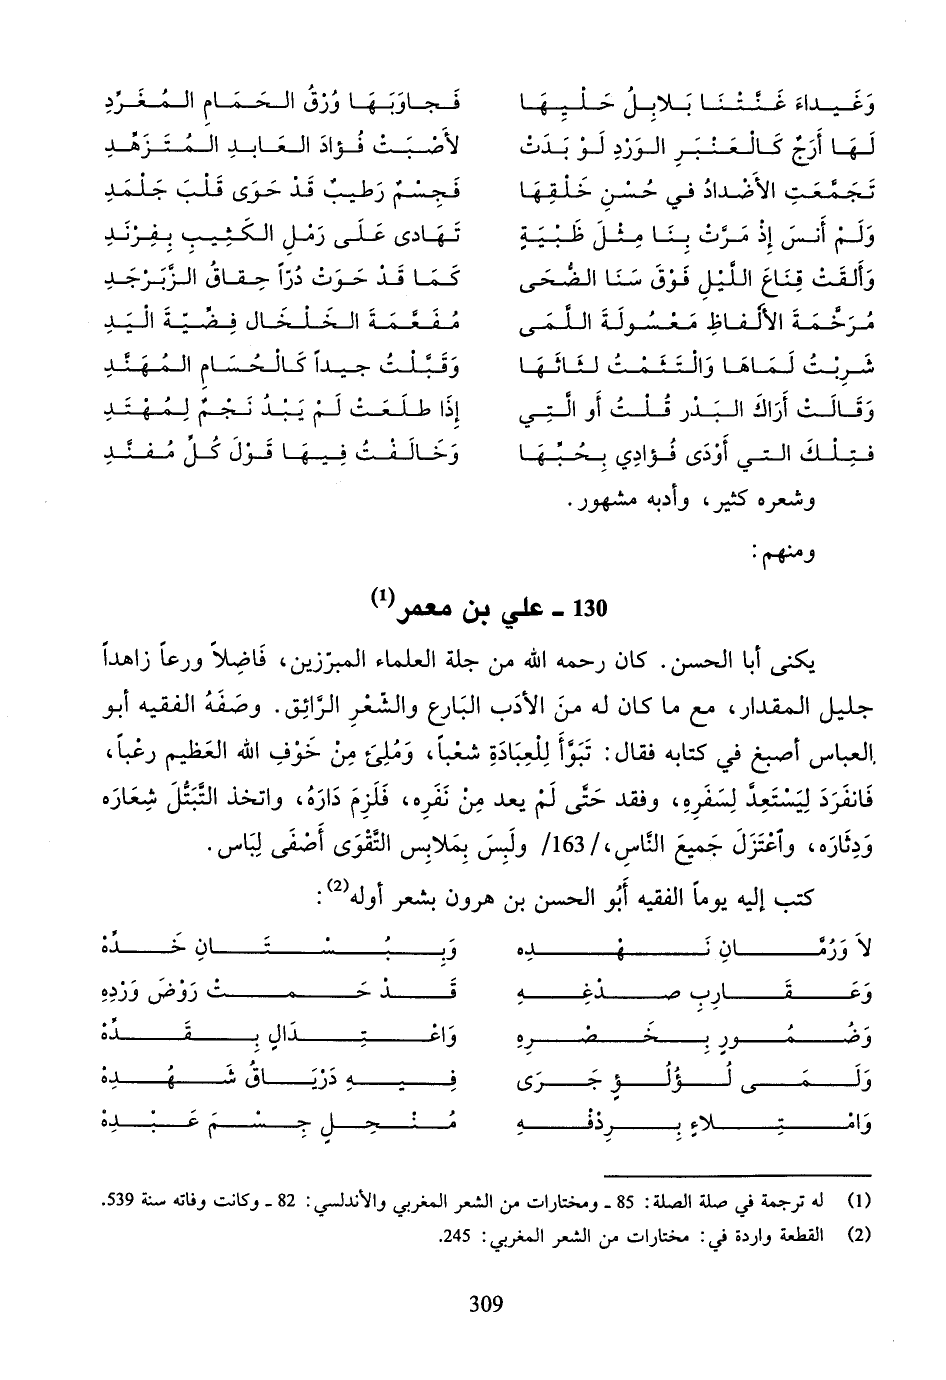 وَغَيداءَ غَنَّتنَا بَلابِلُ حَليِهَا فَجاوَبَهَا وُرْقُ الحَمَامِ المُغَرِّدِ
لَهَا أَرَجٌ كَالعَنْبَرِ الوَرْدِ لَوْ بَدَتْ لأَصْبَتْ فُؤَادَ العَابِدِ المُتَزَهِّدِ
تَجَمَّعَتِ الأَضْدَادُ في حُسْنِ خَلقِهَا فَجِسْمٌ رَطِيبٌ قَدْ حَوَى قَلْبَ جَلْمَدِ
وَلَم أَنسَ إِذ مَرَّت بِنَا مِثْلَ ظَبْيَةٍ تَهَادَى عَلَى رَمْلِ الكَثِيبِ بِفَرْقَدِ
وَأَلقَتْ قِنَاعَ اللَّيْلِ فَوْقَ سَنَا الضُّحَى كَمَا قَدْ حَوَتْ دُرّاً حِقَاقُ الزَّبَرْجَدِ
مُرَخَّمَةَ الأَلْفَاظِ مَعْسُولَةَ اللَّمَى مُفَعَّمَةَ الخَلْخَالِ فِضِّيَةَ اليَدِ
شَرِبْتُ لَمَاهَا وَالْتَثَمْتُ لِثَاتَهَا وَقَبَّلْتُ جِيداً كَالحُسَامِ المُهَنَّدِ
وَقَالَتْ أَرَاكَ البَدْرَ قُلْتُ أَوِ الَّتِي إِذَا طَلَعَتْ لَمْ يَبْدُ نَجْمٌ لِمُهْتَدِ
فَتِلْكَ التي أَوْدَى فُؤَادِي بِحُبِّهَا وَخَالَفْتُ فِيهَا قَوْلَ كُلِّ مُفَنِّدِ
وشعره كثير، وأدبه مشهور.
ومنهم:
130 ـ علي بن معمر(1)
يكنى أبا الحسن. كان رحمه الله من جلة العلماء المبرّزين، فَاضِلاً ورعاً زاهداً
جليل المقدار، مع ما كان له منَ الأدَب البَارع والشِّعْرِ الرَّائِق. وصَفَهُ الفقيه أبو
العباس أصبغ في كتابه فقال: تَبَوَّأَ لِلْعِبَادَةِ شعْباً، وَمُلِئَ مِنْ خَوْفِ الله العَظِيم رعْباً،
فَانفَرَدَ لِيَسْتَعِدَّ لِسَفَرِهِ، وفقد حَتَّى لَمْ يعد مِنْ نَفَرِه، فَلَزِمَ دَارَهُ، واتخذ التَّبَتُّلَ شِعَارَه
وَدِثَارَه، واعْتَزَلَ جَمِيعَ النَّاسِ، /163/ ولَبِسَ بِمَلابِسِ التَّقْوَى أَضْفَى لِبَاس.
كتب إليه يوماً الفقيه أَبُو الحسن بن هرون بشعر أوله(2):
لاَ وَرُمَّانِ نَهْدِهِ وَبُسْتَانِ خَدِّهْ
وَعَقَارِبِ صدْغِهِ قَدْ حَمتْ رَوْضَ وَرْدِهِ
وَضُمُورٍ بِخَصْرِهِ وَاعْتِدَالٍ بِقَدِّهْ
وَلَمَى لُؤْلُؤٍ جَرَى فِيهِ دَرْيَاقُ شَهْدِهْ
وَامْتِلاءٍ بِرِدْفِهِ مُنْحِلٍ جِسْمَ عَبْدِهْ
(1) له ترجمة في صلة الصلة: 85 ـ ومختارات من الشعر المغربي والأندلسي: 82 ـ وكانت وفاته سنة 539.
(2) القطعة واردة في: مختارات من الشعر المغربي: 245.
309